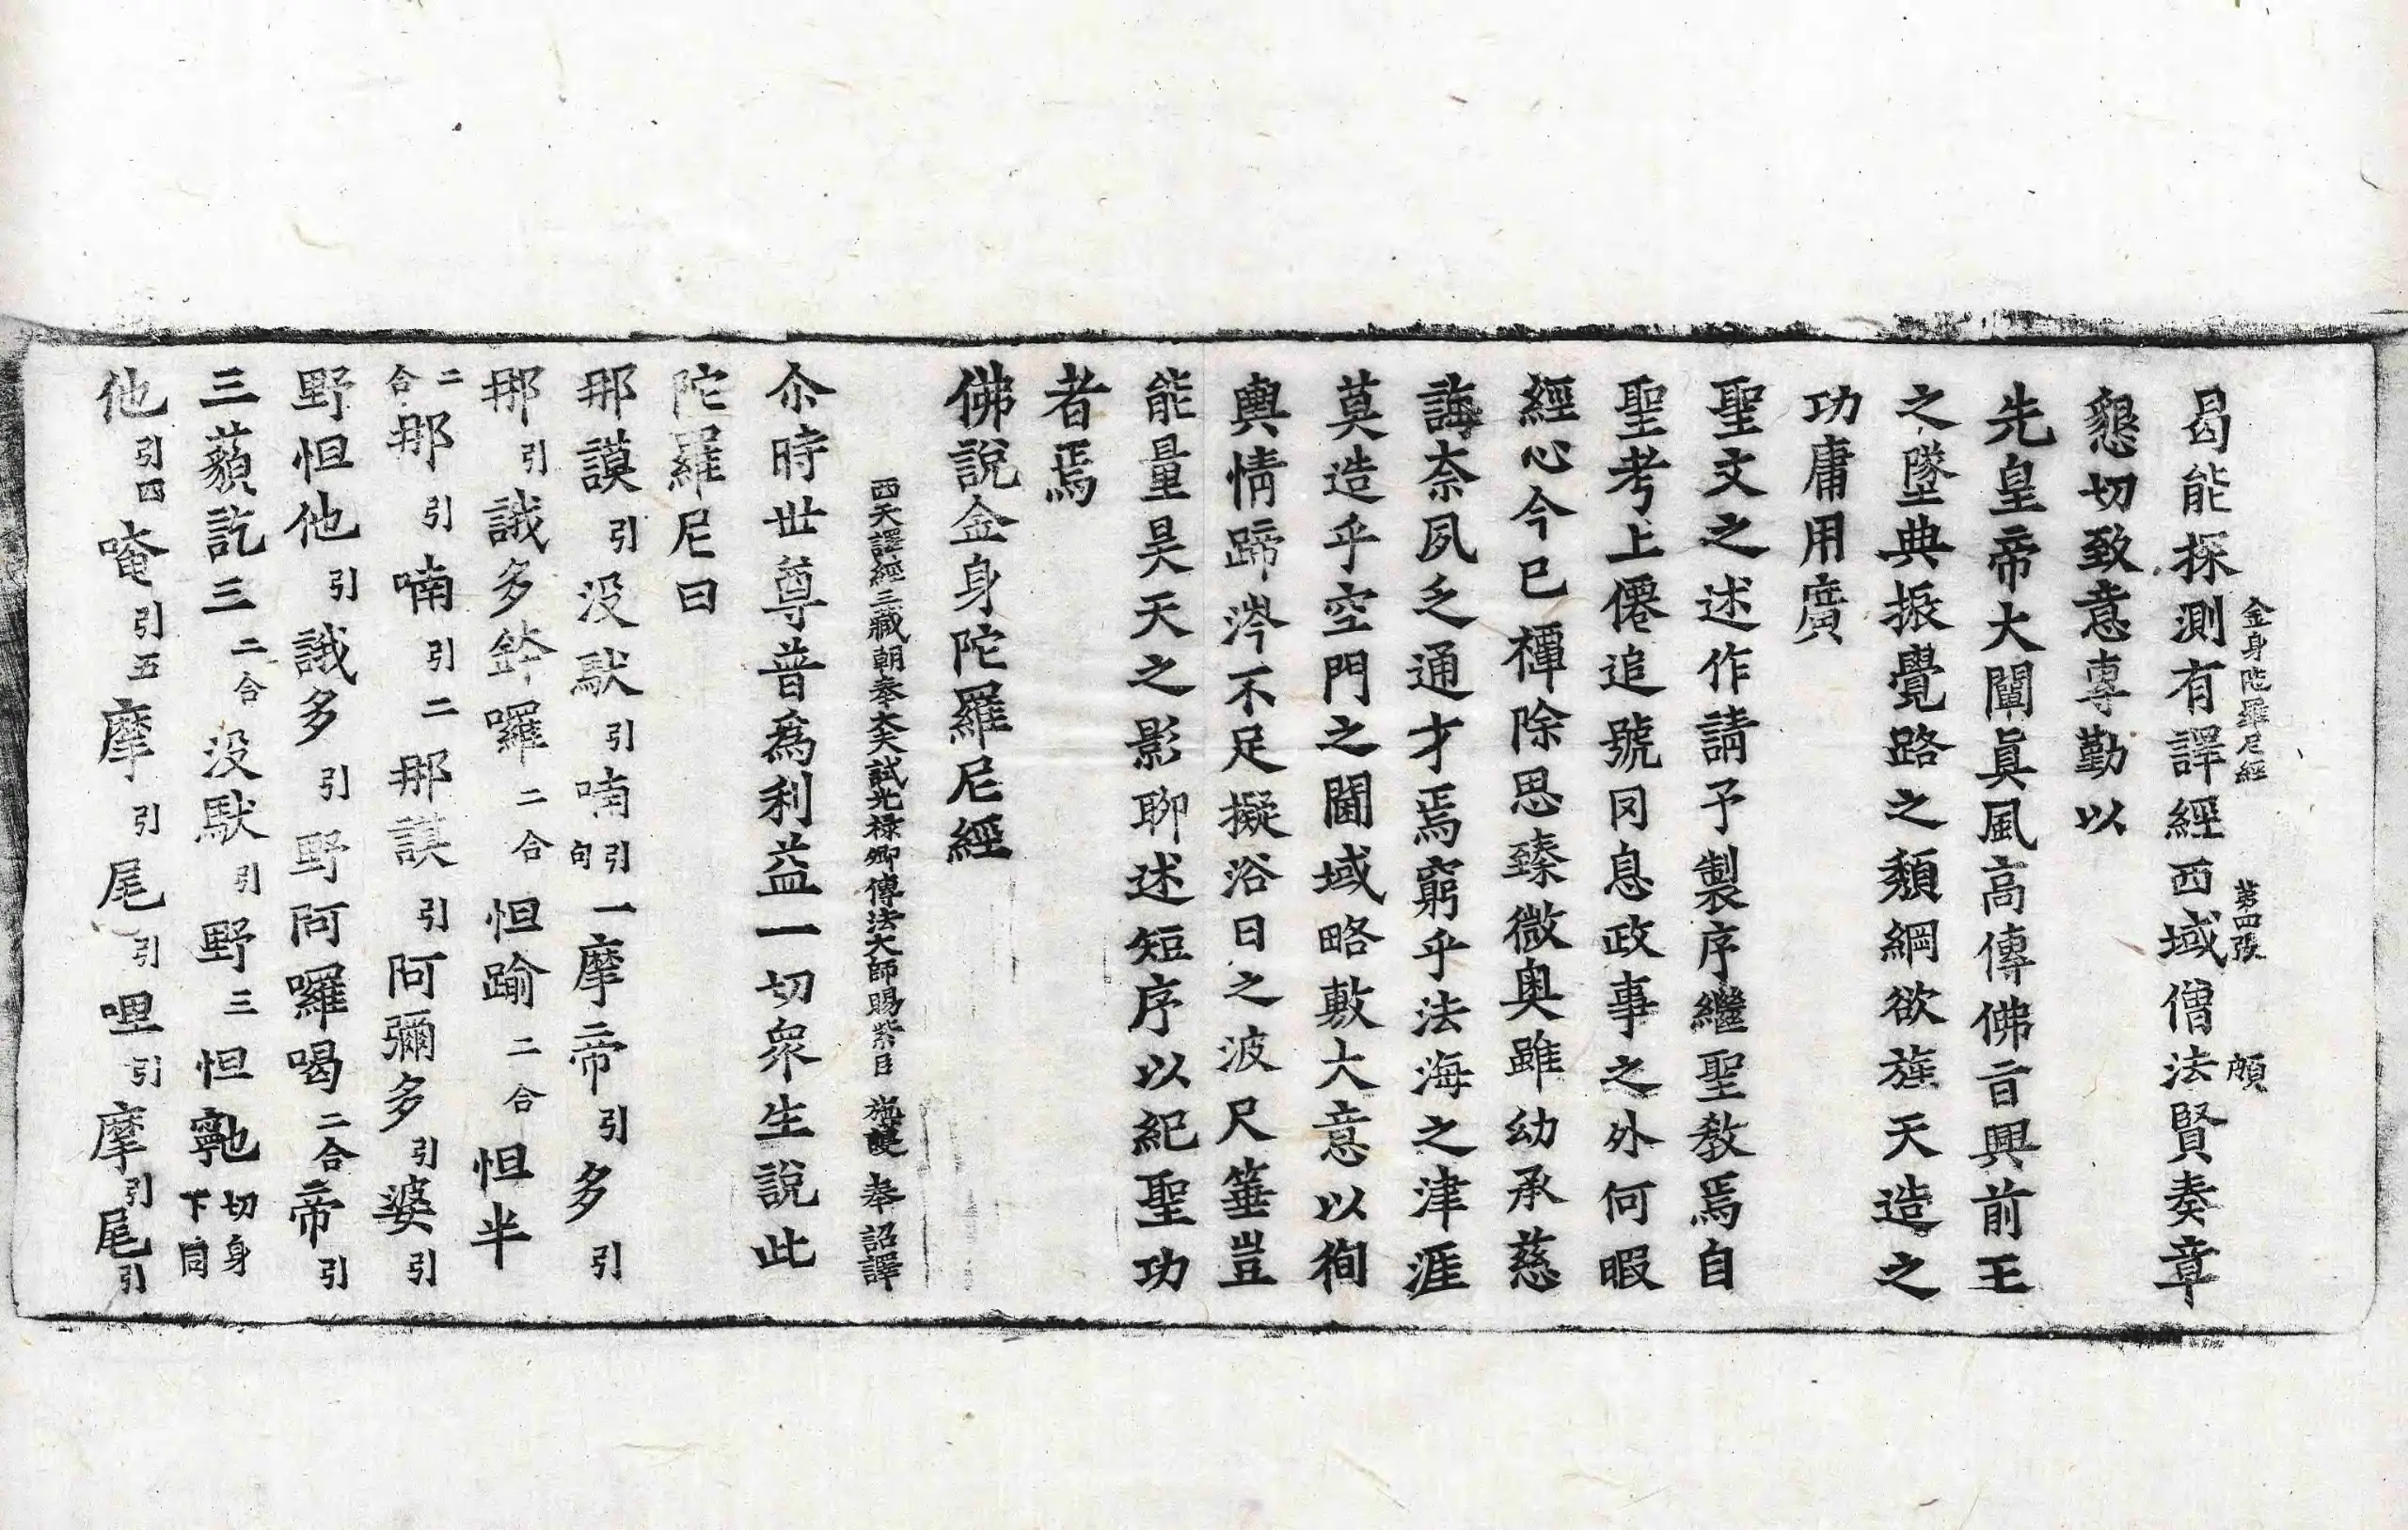 金身陁羅尼經 第四張 頗
曷能探測有譯經西域僧法賢奏章
懇切致意專勤以
先皇帝大闡眞風高傳佛旨興前王
之墜典振覺路之頹綱欲旌天造之
功庸用廣
聖文之述作請予製序繼聖敎焉自
聖考上僊追號罔息政事之外何暇
經心今已禫除思臻微奧雖幼承慈
誨柰夙乏通才焉窮乎法海之津涯
莫造乎空門之閫域略敷大意以徇
輿情蹄涔不足擬浴日之波尺箠豈
能量昊天之影聊述短序以紀聖功
者焉
佛說金身陀羅尼經
西天譯經三藏朝奉大夫試光祿卿傳法大師賜紫臣 施護 奉 詔譯
尒時世尊普爲利益一切衆生說此
陀羅尼曰
那謨引没馱引喃引句一摩帝引多引
那引誐多鉢囉二合怛踰二合怛半
二合那引喃引二那謨引阿彌多引婆引
野怛他引誐多引野阿囉喝二合帝引
三藐訖三二合没馱引野三怛寧也切身下同
他引四唵引五摩引尾引哩引摩引尾引